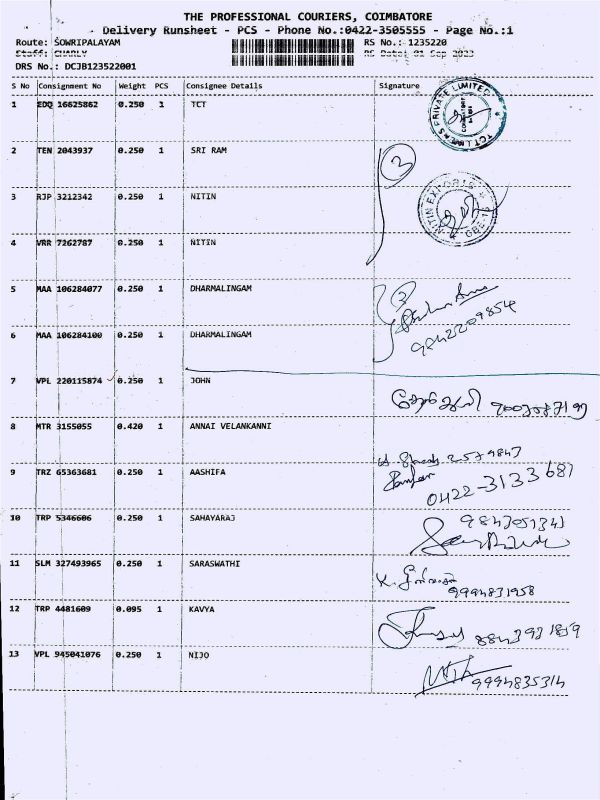 THE PROFESSIONAL COURIERS, COIMBATORE
Delivery Runsheet - PCS - Phone No.:0422-3505555 - Page No.:1
Route: SOWRIPALAYAM RS No.: 1235220
Staff: CHARLY RS Date: 01 Sep 2023
DRS No.: DCJB123522001
S No Consignment No Weight PCS Consignee Details Signature
1 EDQ 16625862 0.250 1 TCT
2 TEN 2043937 0.250 1 SRI RAM
3 RJP 3212342 0.250 1 NITIN
NITIN EXPORTS
4 VRR 7262787 0.250 1 NITIN
5 MAA 106284077 0.250 1 DHARMALINGAM
9842209854
6 MAA 106284100 0.250 1 DHARMALINGAM
7 VPL 220115874 0.250 1 JOHN
8 MTR 3155055 0.420 1 ANNAI VELANKANNI
2579847
9 TRZ 65363681 0.250 1 AASHIFA
0422-3133681
10 TRP 5346606 0.250 1 SAHAYARAJ
9843051341
11 SLM 327493965 0.250 1 SARASWATHI
9994831958
12 TRP 4481609 0.095 1 KAVYA
8843931819
13 VPL 945041076 0.250 1 NIJO
9994835314